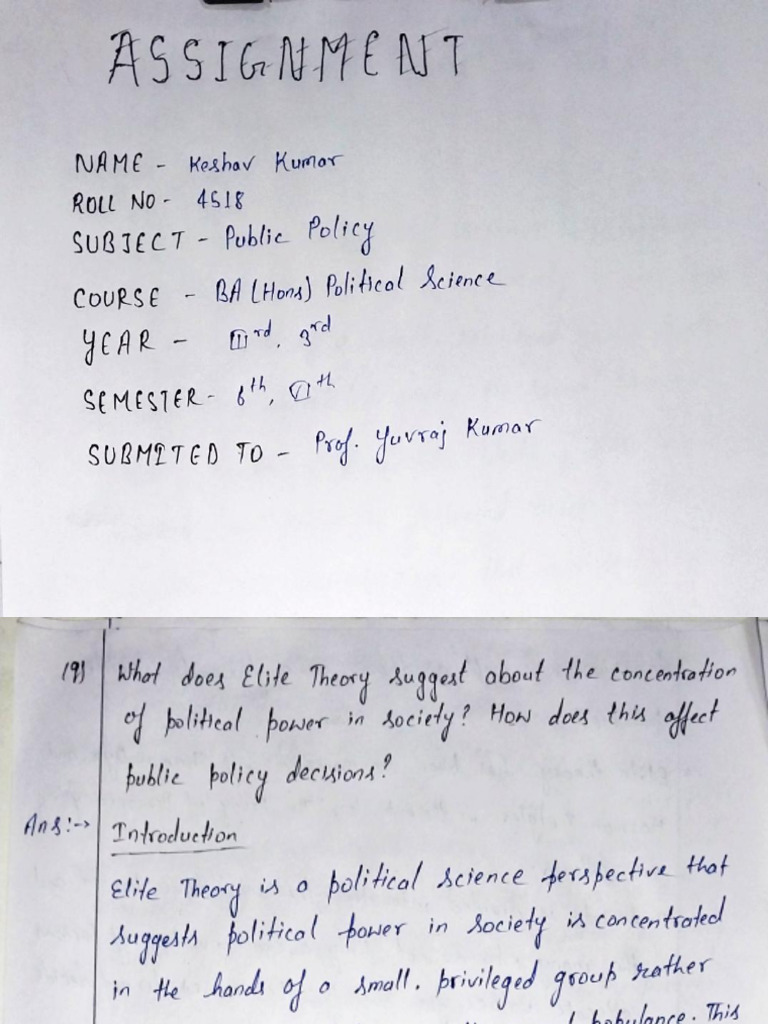 ASSIGNMENT
NAME - Keshav Kumar
ROLL NO - 4518
SUBJECT - Public Policy
COURSE - BA (Hons) Political Science
YEAR - IIIrd, 3rd
SEMESTER - 6th, VIth
SUBMITED TO - Prof. Yuvraj Kumar
(9) What does Elite Theory suggest about the concentration
of political power in society? How does this affect
public policy decisions?
Ans:→ Introduction
Elite Theory is a political science perspective that
suggests political power in society is concentrated
in the hands of a small, privileged group rather
populance. This